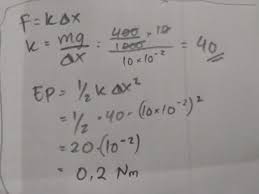 F = k Δx
k = mg/Δx = (400/1000 · 10)/(10 × 10⁻²) = 40
EP = 1/2 k Δx²
= 1/2 · 40 · (10 × 10⁻²)²
= 20 · (10⁻²)
= 0,2 Nm